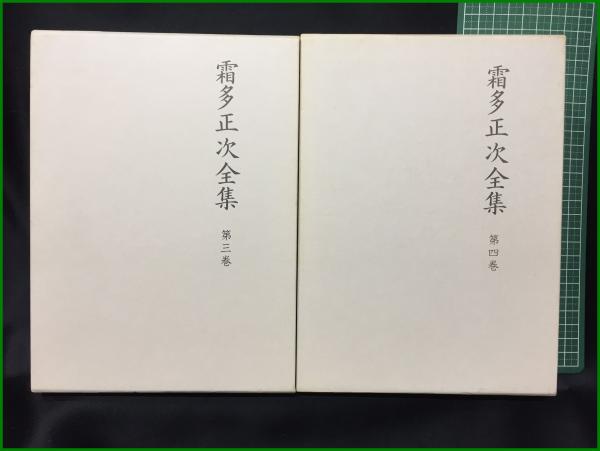 霜多正次全集
第三巻
霜多正次全集
第四巻